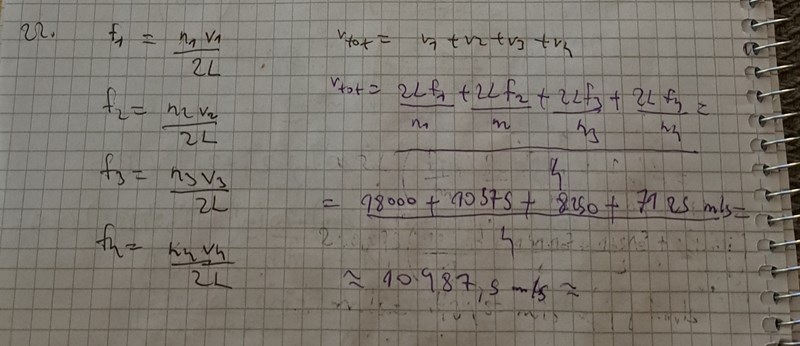 22. f1 = n1 v1 / 2L
f2 = n2 v2 / 2L
f3 = n3 v3 / 2L
f4 = n4 v4 / 2L
vtot = v1 + v2 + v3 + v4
vtot = (2Lf1 / n1 + 2Lf2 / n + 2Lf3 / n3 + 2Lf4 / n4) / 4 =
= (18000 + 10575 + 8250 + 7125 m/s) / 4 =
≈ 10.987,5 m/s ≈